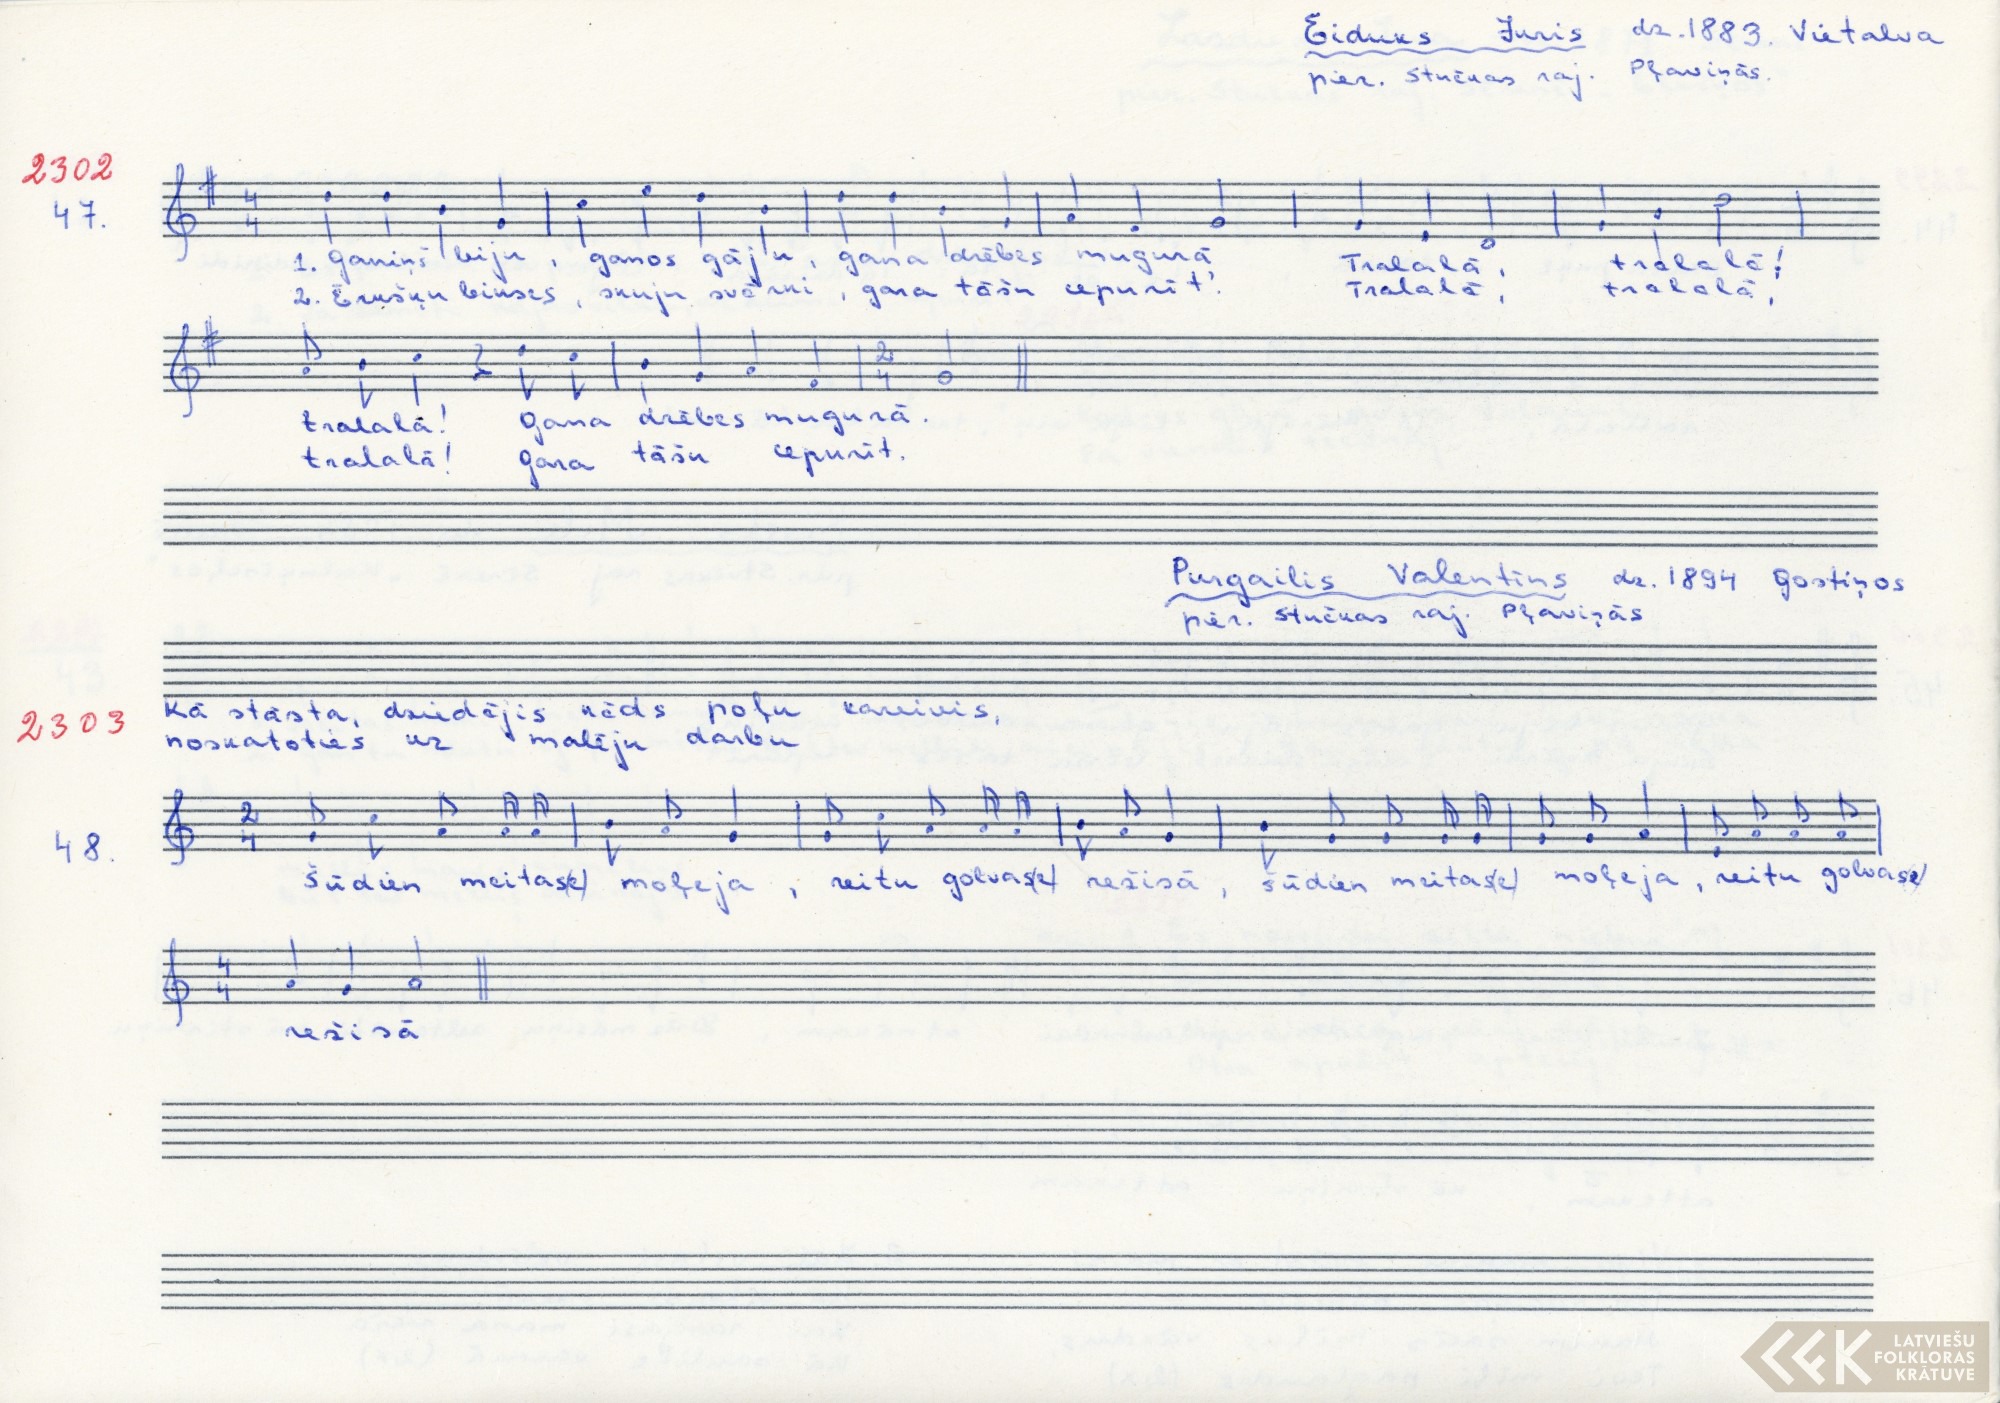 Eiduks Juris dz. 1883. Vietalva
pier. Stučkas raj. Pļaviņās.
2302
47.
4
4
1. Ganiņš biju, ganos gāju, gana drēbes mugurā Tralalā, tralalā!
2. Ērkšķu bikses, skuju svārki, gara tāšu cepurīt'. Tralalā, tralalā,
2
4
tralalā! Gana drēbes mugurā.
tralalā! Gara tāšu cepurīt.
Purgailis Valentīns dz. 1894 Gostiņos
pier. Stučkas raj. Pļaviņās
2303
Kā stāsta, dziedājis kāds poļu kareivis,
noskatoties uz malēju darbu
48.
2
4
šūdien meitas(e) moļeja, reitu golvas(e) režisā, šūdien meitas(e) moļeja, reitu golvas(e)
4
4
režisā
LATVIEŠU
FOLKLORAS
KRĀTUVE